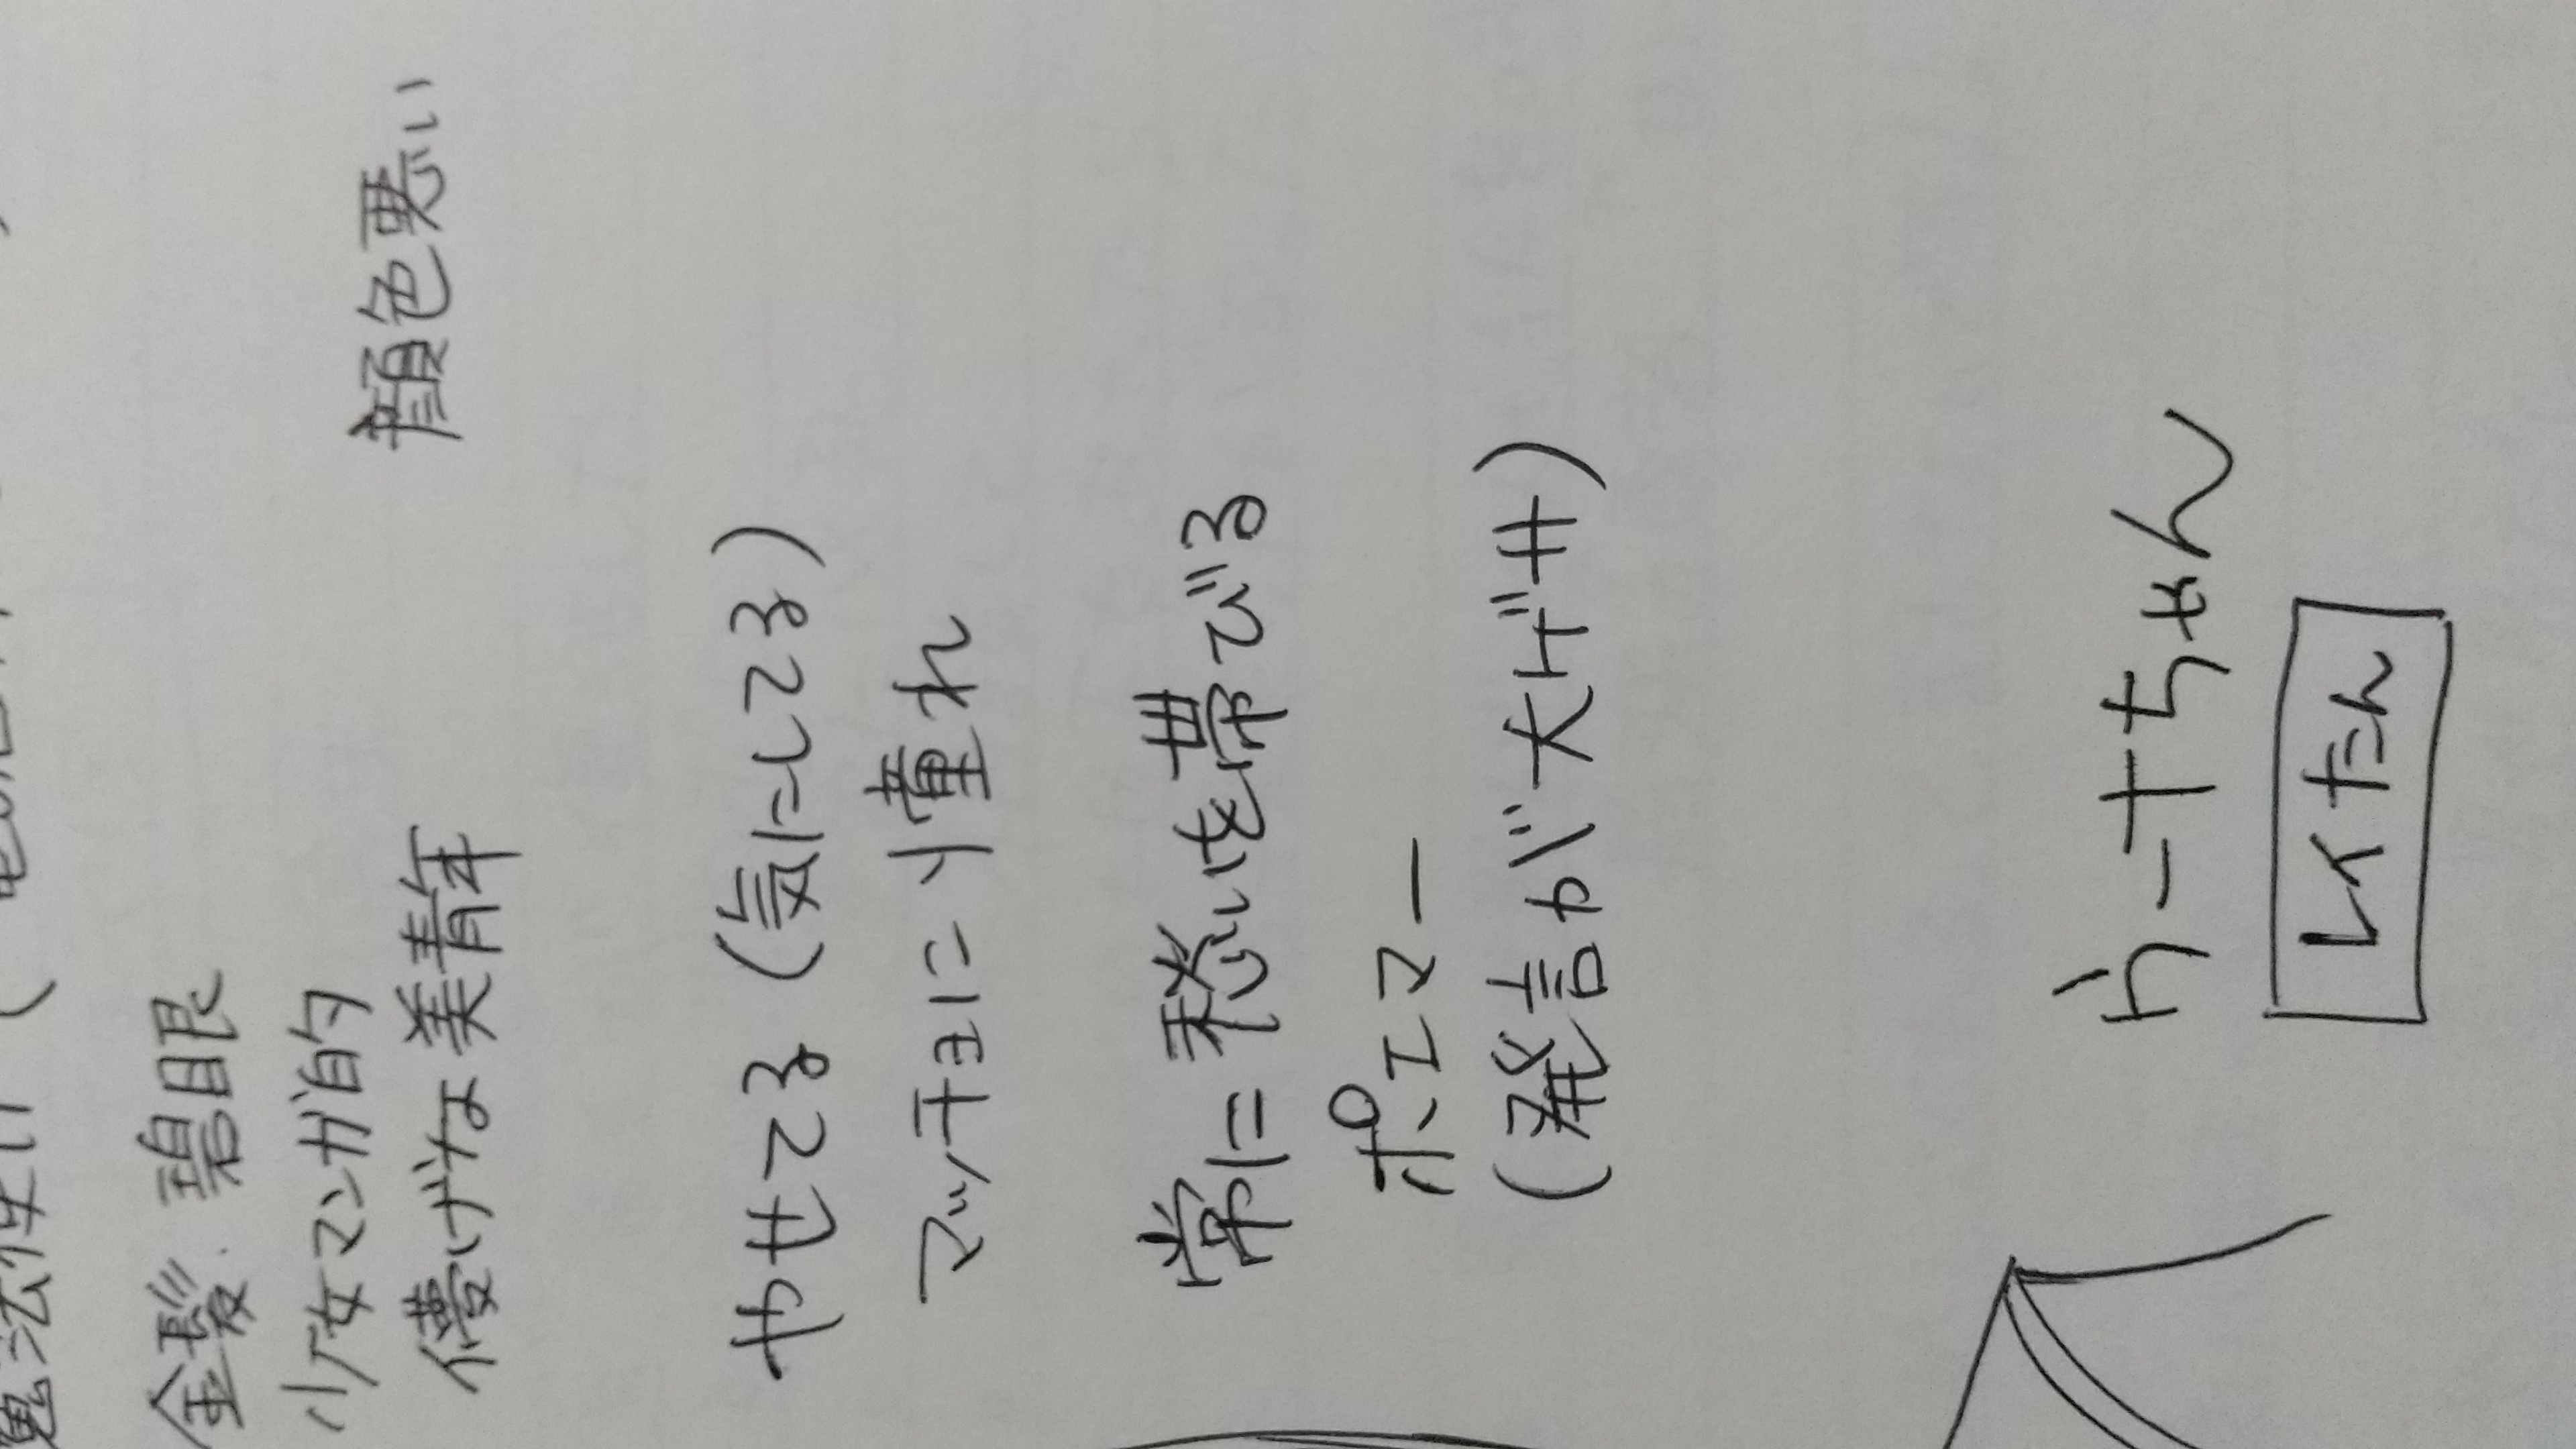 魔法使い(
金髪 碧眼
少女マンガ的
儚げな美青年
顔色悪い
やせてる(気にしてる)
マッチョに憧れ
常に愁いを帯びる
ポエマー
(発言が大ゲサ)
ナちゃん
レイたん